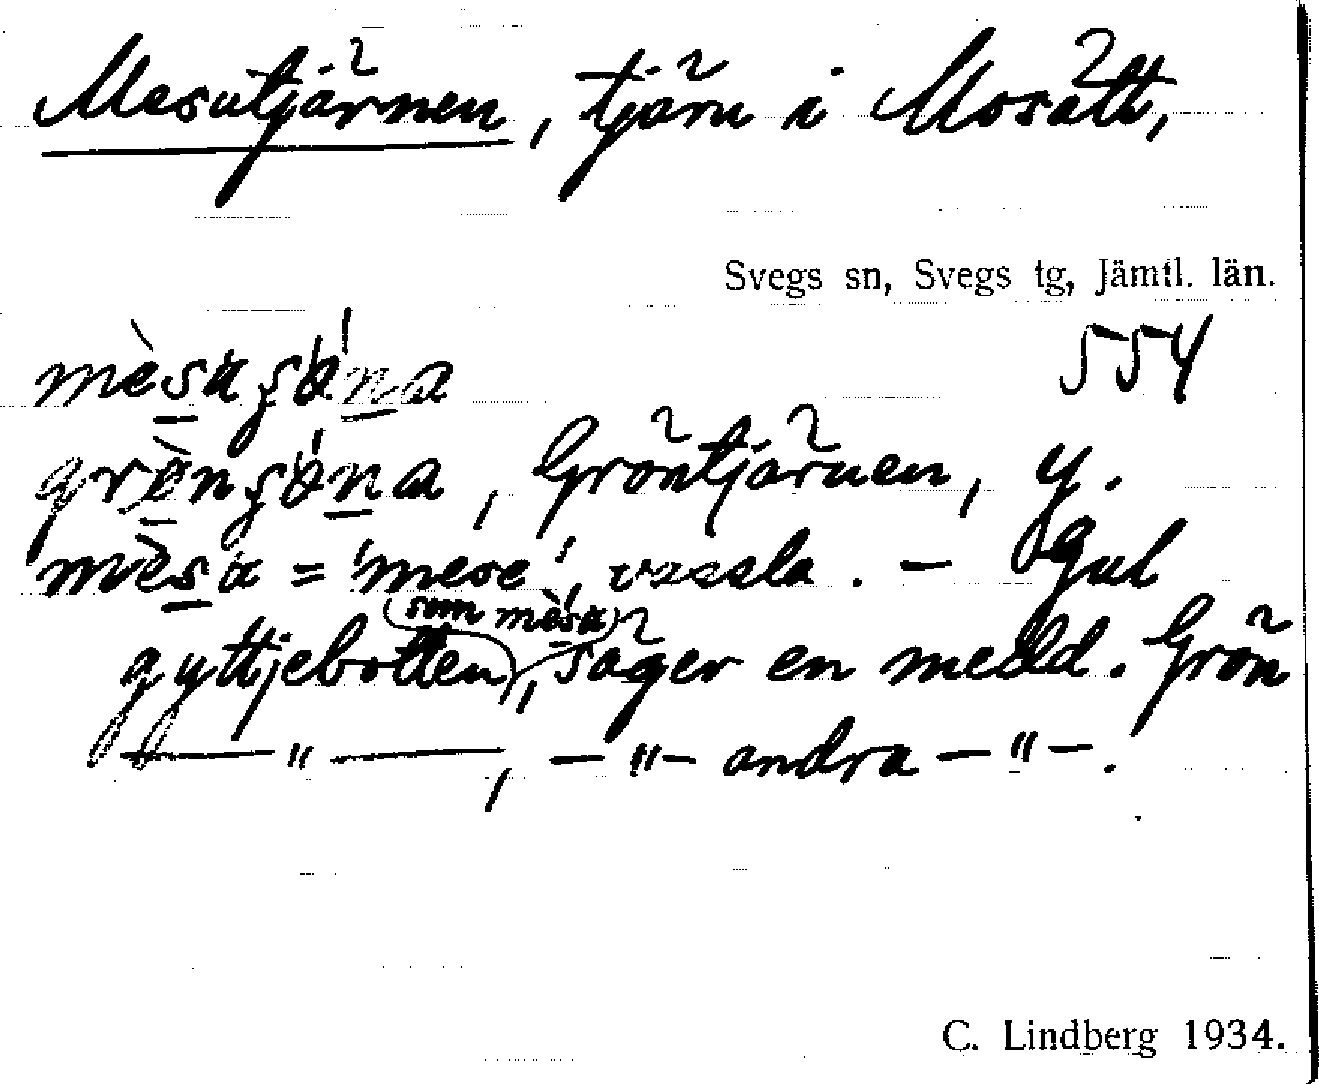 Mesutjärnen, tjärn i Mosätt,
Svegs sn, Svegs tg, Jämtl. län.
554
Gröntjärnen, y.
= 'mese', vassla. – Gul
(som mèsa)
gyttjebotten, säger en medd. Grön
—— " ——, – " – andra – " –.
C. Lindberg 1934.